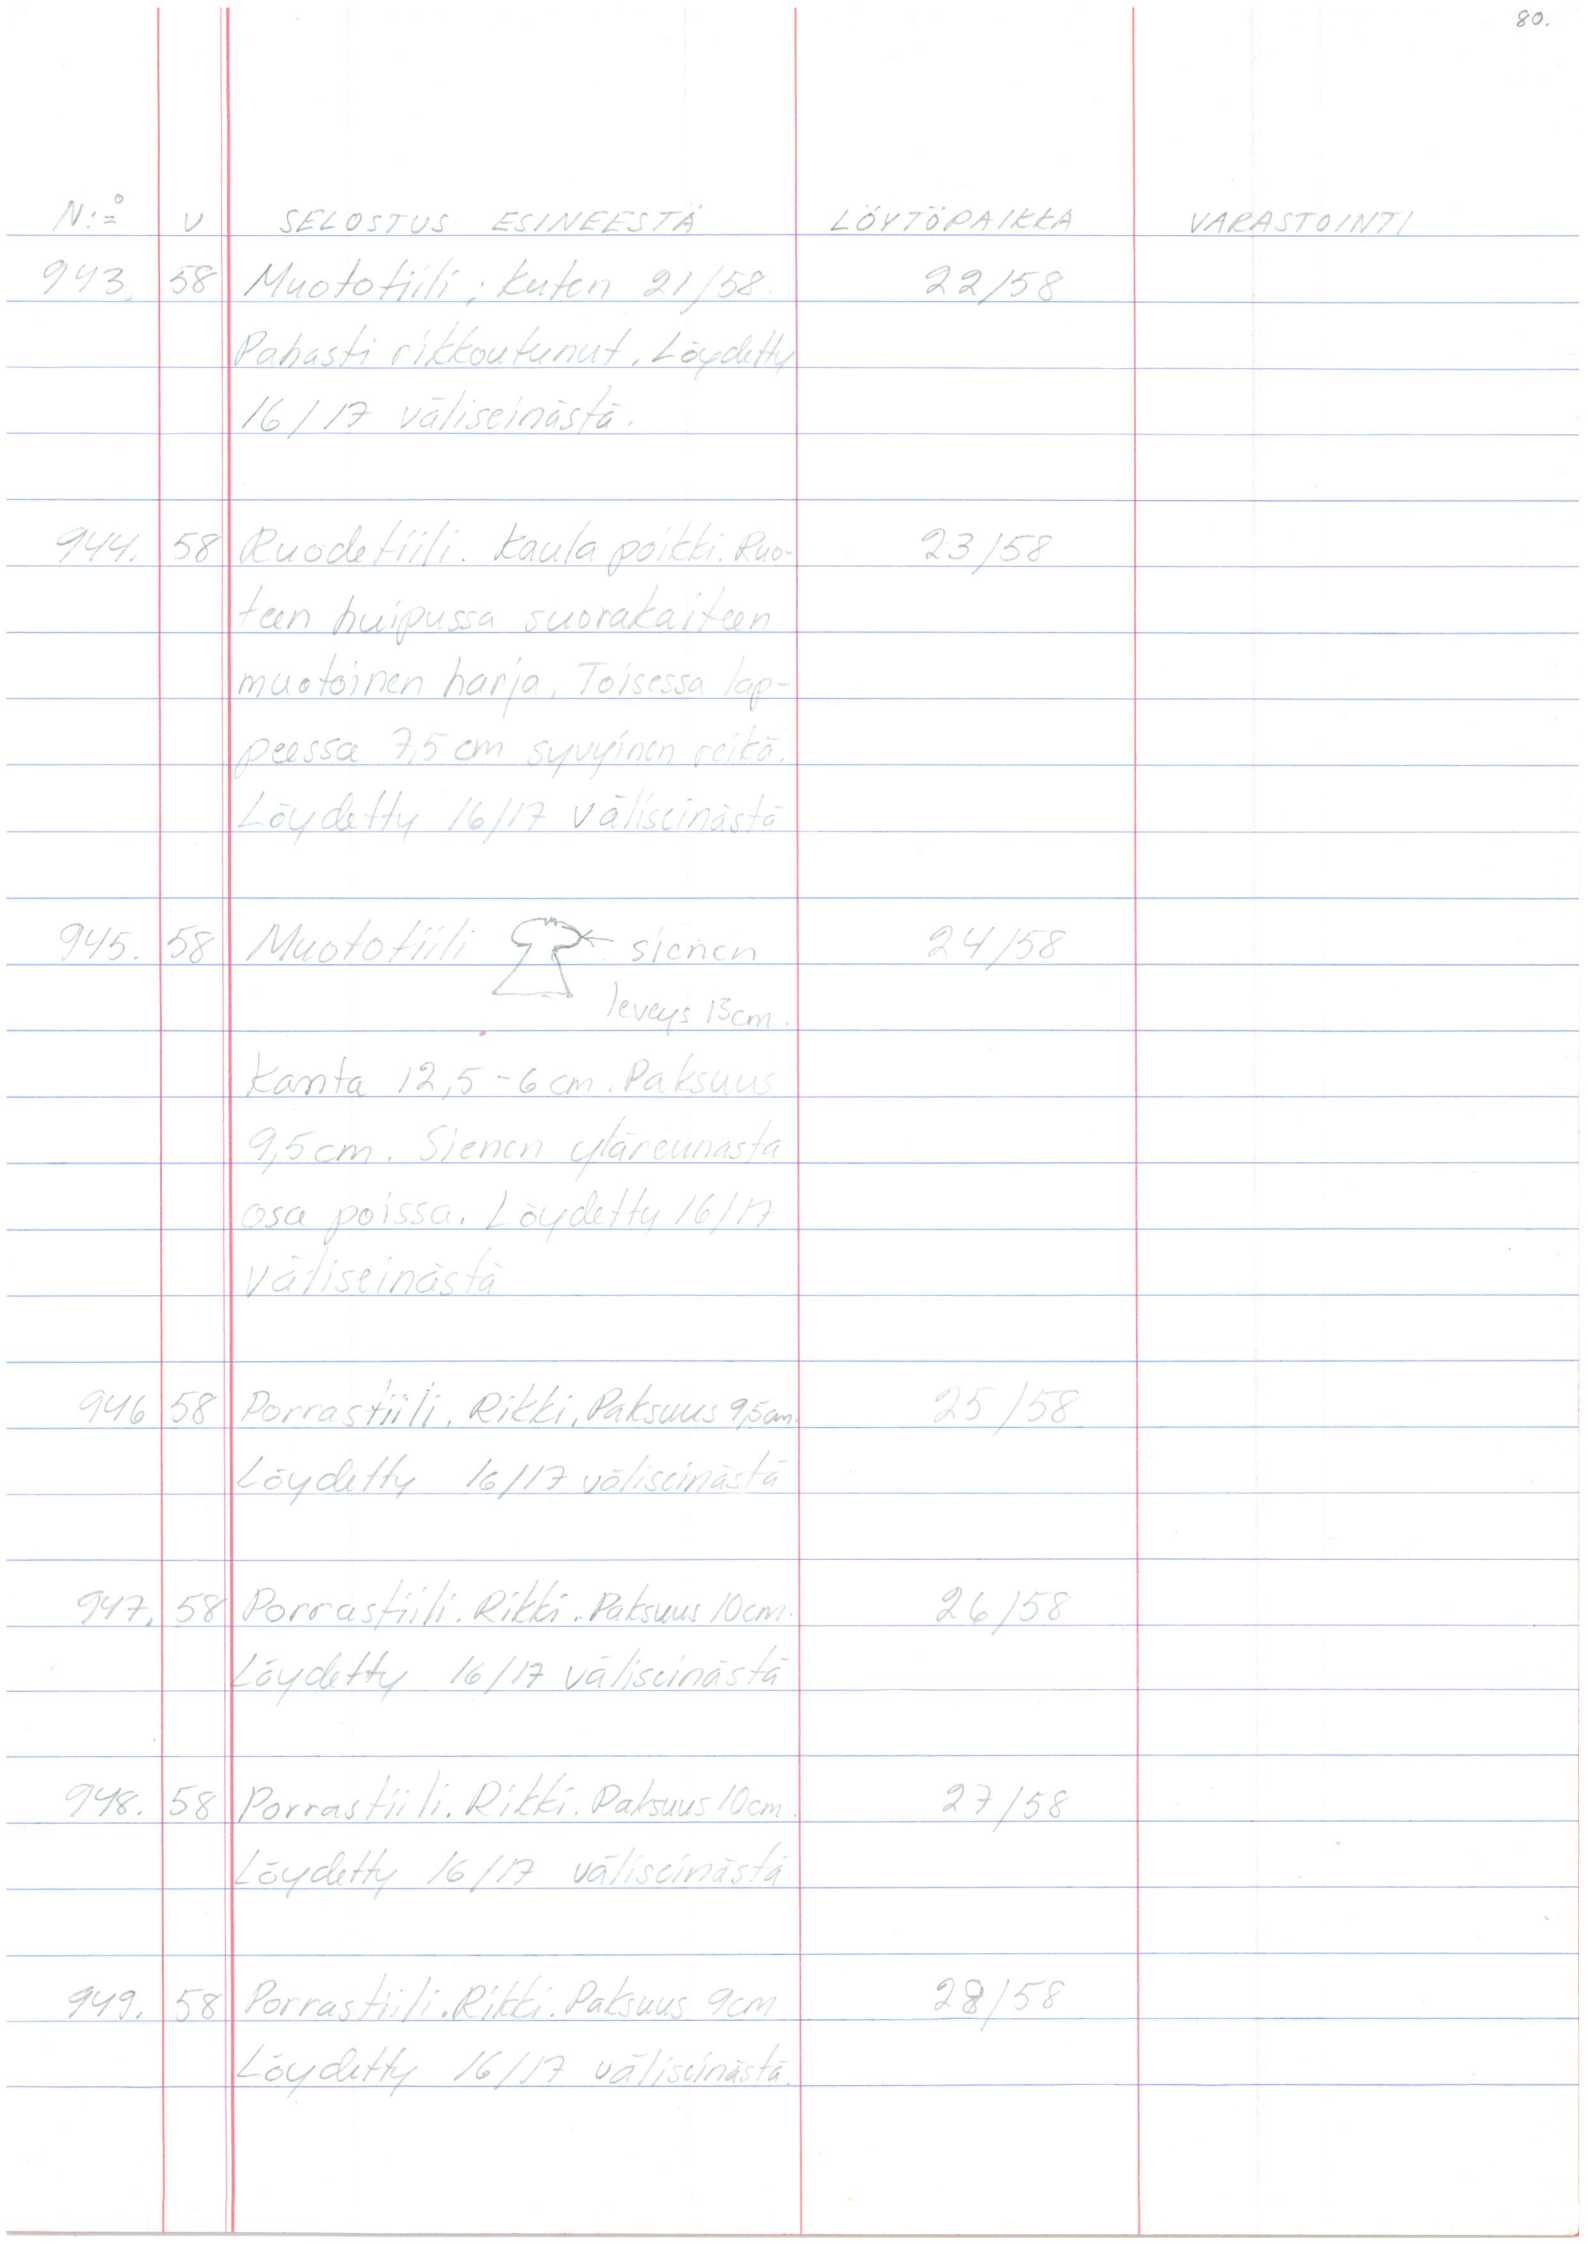 80.
N:o V SELOSTUS ESINEESTÄ LÖYTÖPAIKKA VARASTOINTI
943. 58 Muototiili; kuten 21/58. 22/58
Pahasti rikkoutunut. Löydetty
16/17 väliseinästä.
944. 58 Ruodetiili. Kaula poikki. Ruo- 23/58
teen huipussa suorakaiteen
muotoinen harja. Toisessa lap-
peessa 7,5 cm syvyinen reikä.
Löydetty 16/17 väliseinästä
945. 58 Muototiili sienen 24/58
leveys 13cm.
Kanta 12,5-6cm. Paksuus
9,5cm. Sienen yläreunasta
osa poissa. Löydetty 16/17
väliseinästä
946 58 Porrastiili. Rikki. Paksuus 9,5cm. 25/58
Löydetty 16/17 väliseinästä
947. 58 Porrastiili. Rikki. Paksuus 10cm. 26/58
Löydetty 16/17 väliseinästä
948. 58 Porrastiili. Rikki. Paksuus 10cm. 27/58
Löydetty 16/17 väliseinästä
949. 58 Porrastiili. Rikki. Paksuus 9cm 28/58
Löydetty 16/17 väliseinästä.